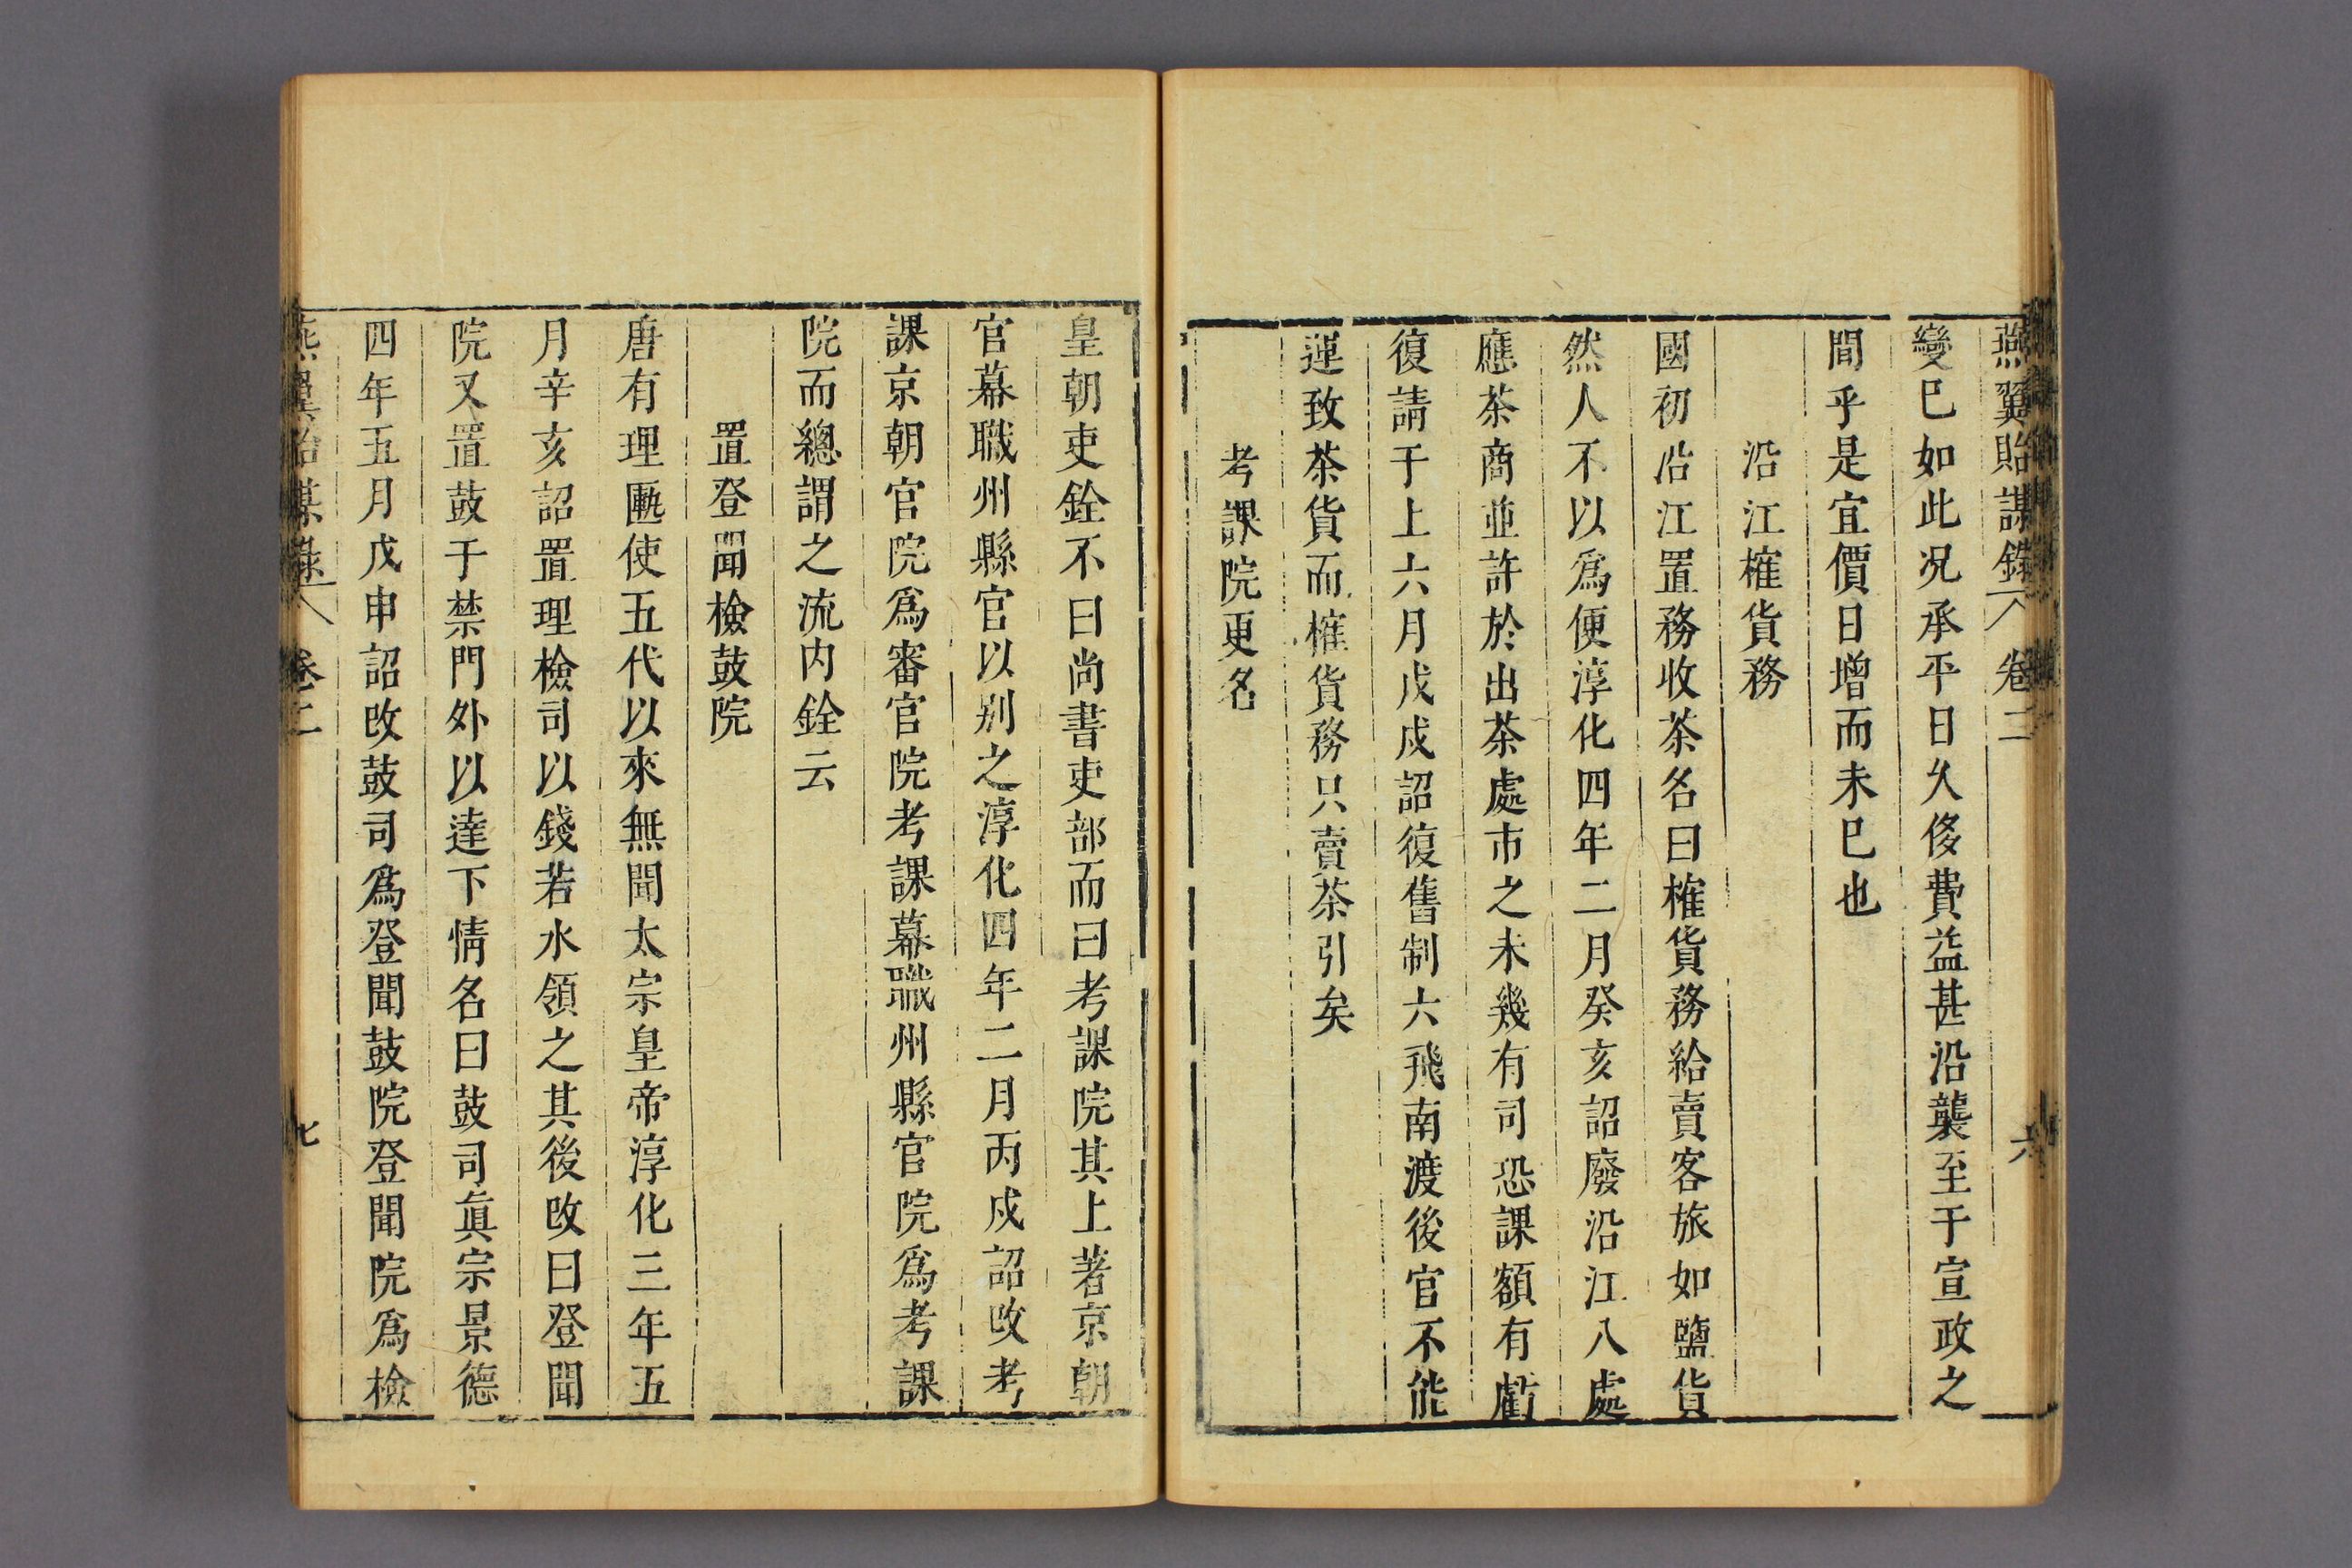 燕翼貽謀錄 卷二 六
變巳如此况承平日久侈費益甚沿襲至于宣政之
間乎是宜價日增而未巳也
沿江榷貨務
國初沿江置務收茶名曰榷貨務給賣客旅如鹽貨
然人不以爲便淳化四年二月癸亥詔廢沿江八處
應茶商並許於出茶處市之未幾有司恐課額有虧
復請于上六月戊戌詔復舊制六飛南渡後官不能
運致茶貨而榷貨務只賣茶引矣
考課院更名
皇朝吏銓不曰尚書吏部而曰考課院其上著京朝
官幕職州縣官以別之淳化四年二月丙戌詔攺考
課京朝官院爲審官院考課幕職州縣官院爲考課
院而總謂之流内銓云
置登聞檢鼓院
唐有理匭使五代以來無聞太宗皇帝淳化三年五
月辛亥詔置理檢司以錢若水領之其後攺曰登聞
院又置鼓于禁門外以達下情名曰鼓司眞宗景德
四年五月戊申詔攺鼓司爲登聞鼓院登聞院爲檢
燕翼貽謀錄 卷二 七